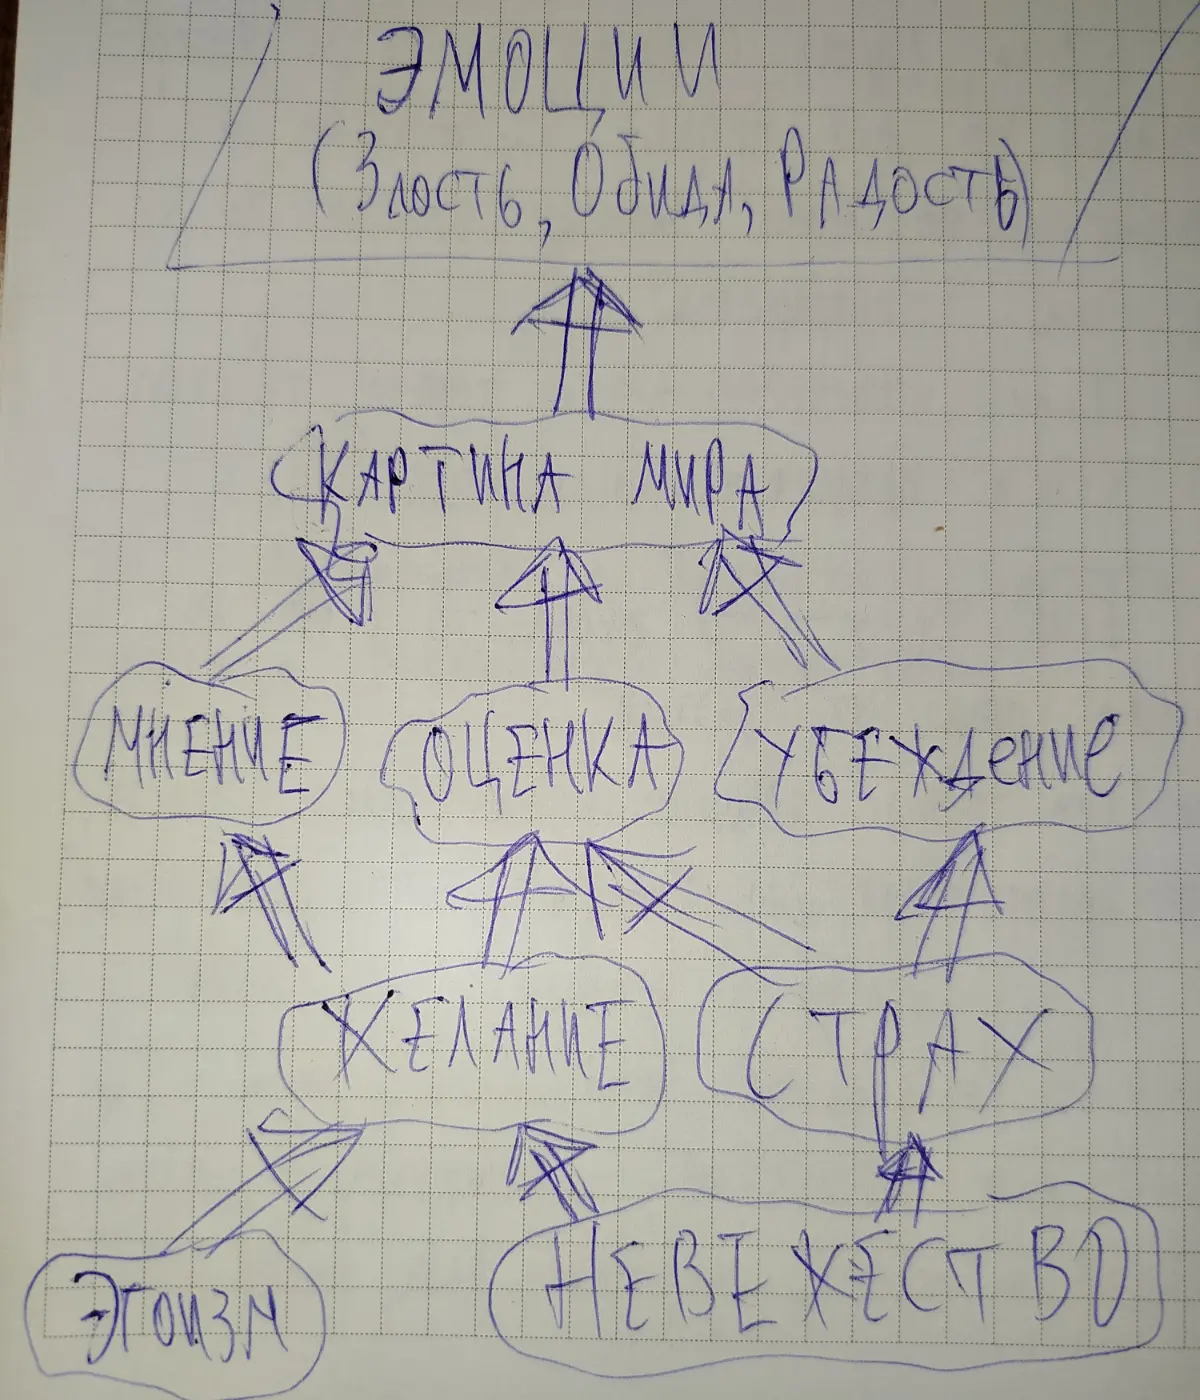 ЭМОЦИИ
(Злость, Обида, Радость)
КАРТИНА МИРА
МНЕНИЕ ОЦЕНКА УБЕЖДЕНИЕ
ЖЕЛАНИЕ СТРАХ
ЭГОИЗМ НЕВЕЖЕСТВО